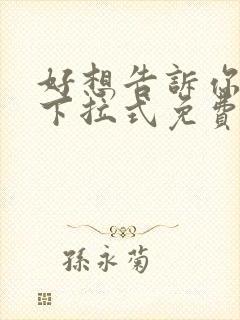 好想告訴你
下拉式免費
孫永菊